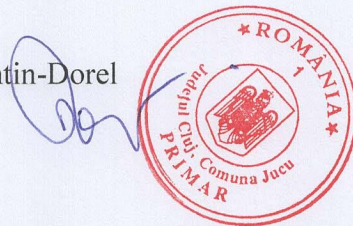 ntin-Dorel
*ROMÂNIA*
1
Județul Cluj, Comuna Jucu
PRIMAR